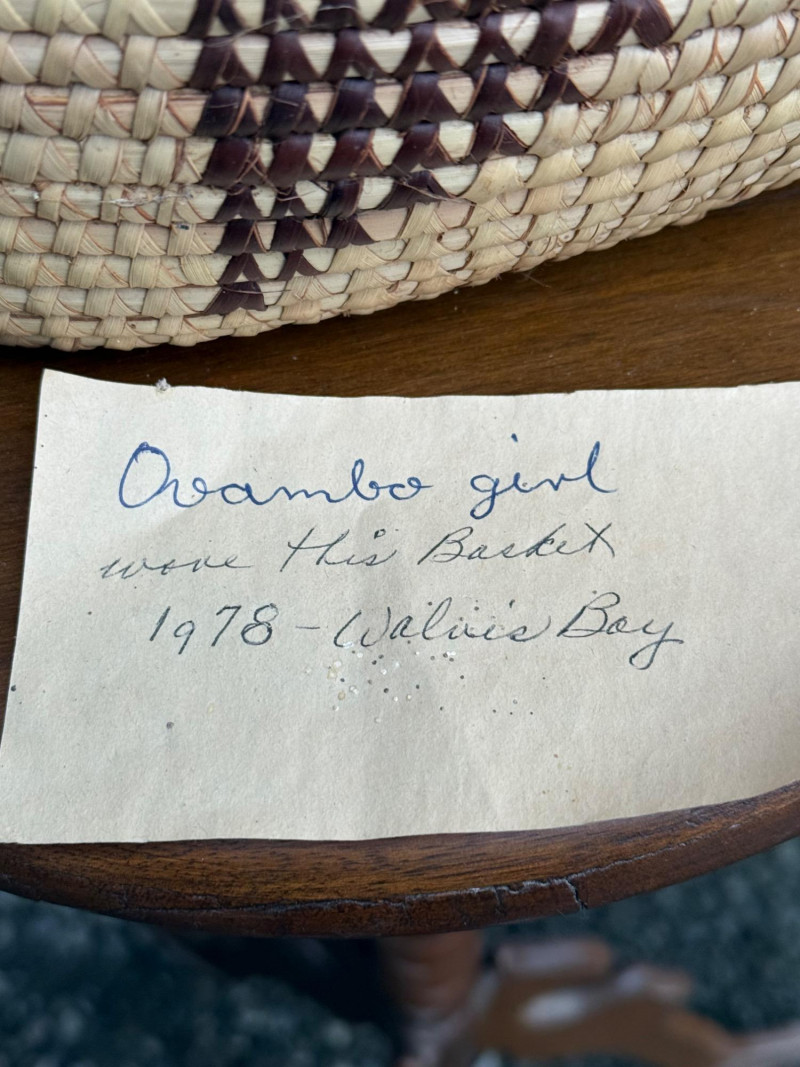 Ovambo girl
wove this Basket
1978 - Walvis Bay